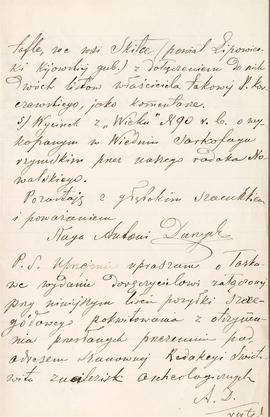 tuflę, we wsi Skitce (powiat Lipowiec-
ki kijowskiej gub.) z dołączeniem do nich
dwóch listów właściciela takowej P. 
czarowskiego, jako komentarze.
5) Wycinek z „Wieku” N 90 r. b. o wy-
kopanym w Wiedniu sarkofagu
rzymskim przez naszego rodaka No-
walskiego.
Pozostaję z głębokim szacunkiem
i poważaniem
Sługa Antoni
P. S. Uprzejmie upraszam o łaska-
we wydanie doręczycielowi załączonej
przy niniejszym liści pozyłki szcze-
gółowego pokwitowania z otrzyma-
nia przesłanych przezemnie pod
adresem Szanownej Redakcyi Świato-
wita znalezisk archeologicznych
A. D.
verte!